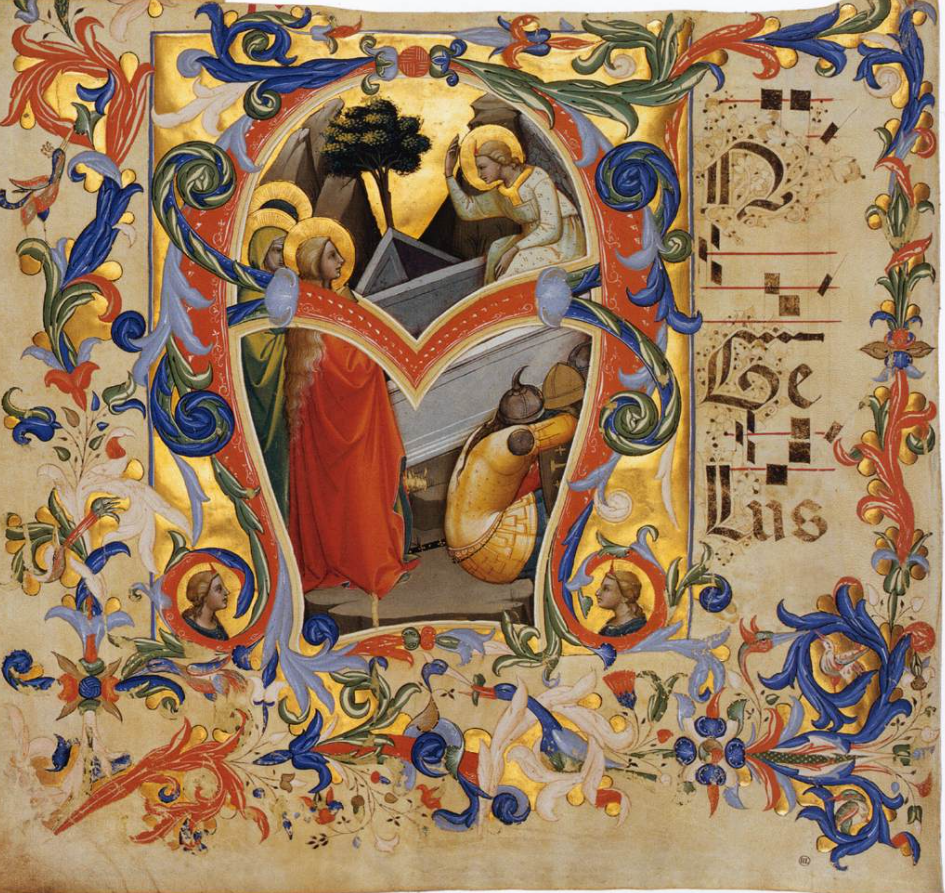 A N
Ge
Lus